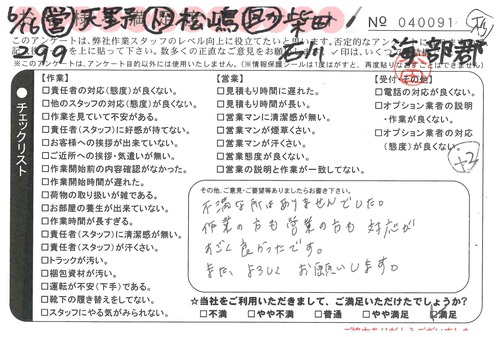 6/26 営 天野 作 松嶋 助 柴田
299 石川
No 040091
海部郡
このアンケートは、弊社作業スタッフのレベル向上に役立てたいと思います。否定的なアンケート
※このアンケートは、アンケート目的以外には使用いたしません。(※情報保護シールは1度はがすと、再度貼りなおすことはできません)
チェックリスト
【作業】
□責任者の対応(態度)が良くない。
□他のスタッフの対応(態度)が良くない。
□作業を見ていて不安がある。
□責任者(スタッフ)に好感が持てない。
□お客様への挨拶が出来ていない。
□ご近所への挨拶・気遣いが無い。
□作業開始前の内容確認がなかった。
□作業開始時間が遅れた。
□荷物の取り扱いが雑である。
□お部屋の養生が出来ていない。
□作業時間が長すぎる。
□責任者(スタッフ)に清潔感が無い。
□責任者(スタッフ)が汗くさい。
□トラックが汚い。
□梱包資材が汚い。
□運転が不安(下手)である。
□靴下の履き替えをしてない。
□スタッフにやる気がみられない。
【営業】
□見積もり時間に遅れた。
□見積もり時間が長い。
□営業マンに清潔感が無い。
□営業マンが煙草くさい。
□営業マンが汗くさい。
□営業態度が良くない。
□営業の説明と作業が一致してない。
【受付・その他】
□電話の対応が良くない。
□オプション業者の説明・作業が良くない。
□オプション業者の対応(態度)が良くない。
+2
その他、ご意見・ご要望等ありましたらお書き下さい。
不満な所はありませんでした。
作業の方も営業の方も対応が
すごく良かったです。
また、よろしくお願いします。
☆当社をご利用いただきまして、ご満足いただけたでしょうか?
□不満 □やや不満 □普通 □やや満足 □満足
ご協力ありがとうございました